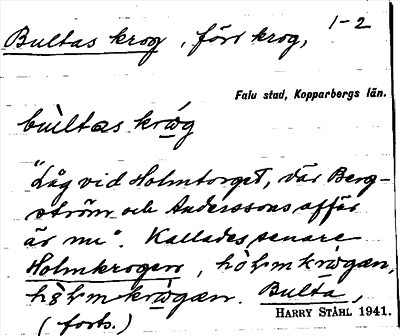 1-2
Bultas krog, förr krog,
Falu stad, Kopparbergs län.
bùltas krω̄́g
"Låg vid Holmtorget, där Berg-
ström och Anderssons affär
är nu". Kallades senare
Holmkrogen, hòłm krω̄gαn,
hòłm krω̄gæn. Bulta,
HARRY STÅHL 1941.
(forts.)